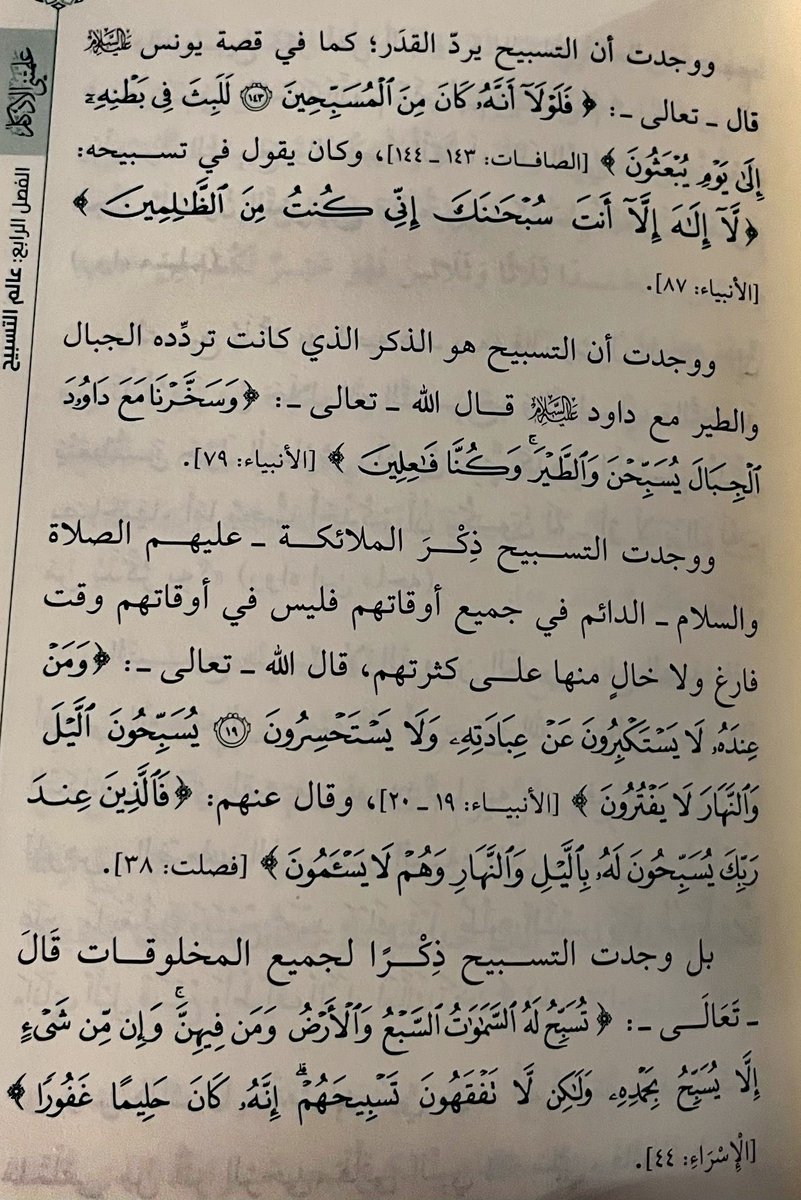 ووجدت أن التسبيح يردّ القدَر؛ كما في قصة يونس عليه السلام
قال ـ تعالى ـ: ﴿ فَلَوْلَآ أَنَّهُۥ كَانَ مِنَ ٱلْمُسَبِّحِينَ ١٤٣ لَلَبِثَ فِى بَطْنِهِۦٓ
إِلَىٰ يَوْمِ يُبْعَثُونَ ﴾ [الصافات: ١٤٣ ـ ١٤٤]، وكان يقول في تسبيحه:
﴿ لَّآ إِلَٰهَ إِلَّآ أَنتَ سُبْحَٰنَكَ إِنِّى كُنتُ مِنَ ٱلظَّٰلِمِينَ ﴾
[الأنبياء: ٨٧].
ووجدت أن التسبيح هو الذكر الذي كانت تردِّده الجبال
والطير مع داود عليه السلام قال الله ـ تعالى ـ: ﴿ وَسَخَّرْنَا مَعَ دَاوُۥدَ
ٱلْجِبَالَ يُسَبِّحْنَ وَٱلطَّيْرَ ۚ وَكُنَّا فَٰعِلِينَ ﴾ [الأنبياء: ٧٩].
ووجدت التسبيح ذِكْرَ الملائكة ـ عليهم الصلاة
والسلام ـ الدائم في جميع أوقاتهم فليس في أوقاتهم وقت
فارغ ولا خالٍ منها على كثرتهم، قال الله ـ تعالى ـ: ﴿ وَمَنْ
عِندَهُۥ لَا يَسْتَكْبِرُونَ عَنْ عِبَادَتِهِۦ وَلَا يَسْتَحْسِرُونَ ١٩ يُسَبِّحُونَ ٱلَّيْلَ
وَٱلنَّهَارَ لَا يَفْتُرُونَ ﴾ [الأنبياء: ١٩ ـ ٢٠]، وقال عنهم: ﴿ فَٱلَّذِينَ عِندَ
رَبِّكَ يُسَبِّحُونَ لَهُۥ بِٱلَّيْلِ وَٱلنَّهَارِ وَهُمْ لَا يَسْـَٔمُونَ ﴾ [فصلت: ٣٨].
بل وجدت التسبيح ذِكْرًا لجميع المخلوقات قَالَ
ـ تَعَالَى ـ: ﴿ تُسَبِّحُ لَهُ ٱلسَّمَٰوَٰتُ ٱلسَّبْعُ وَٱلْأَرْضُ وَمَن فِيهِنَّ ۚ وَإِن مِّن شَىْءٍ
إِلَّا يُسَبِّحُ بِحَمْدِهِۦ وَلَٰكِن لَّا تَفْقَهُونَ تَسْبِيحَهُمْ ۗ إِنَّهُۥ كَانَ حَلِيمًا غَفُورًا ﴾
[الْإِسْرَاءِ: ٤٤].
الفصل الرابع: عالم التسبيح